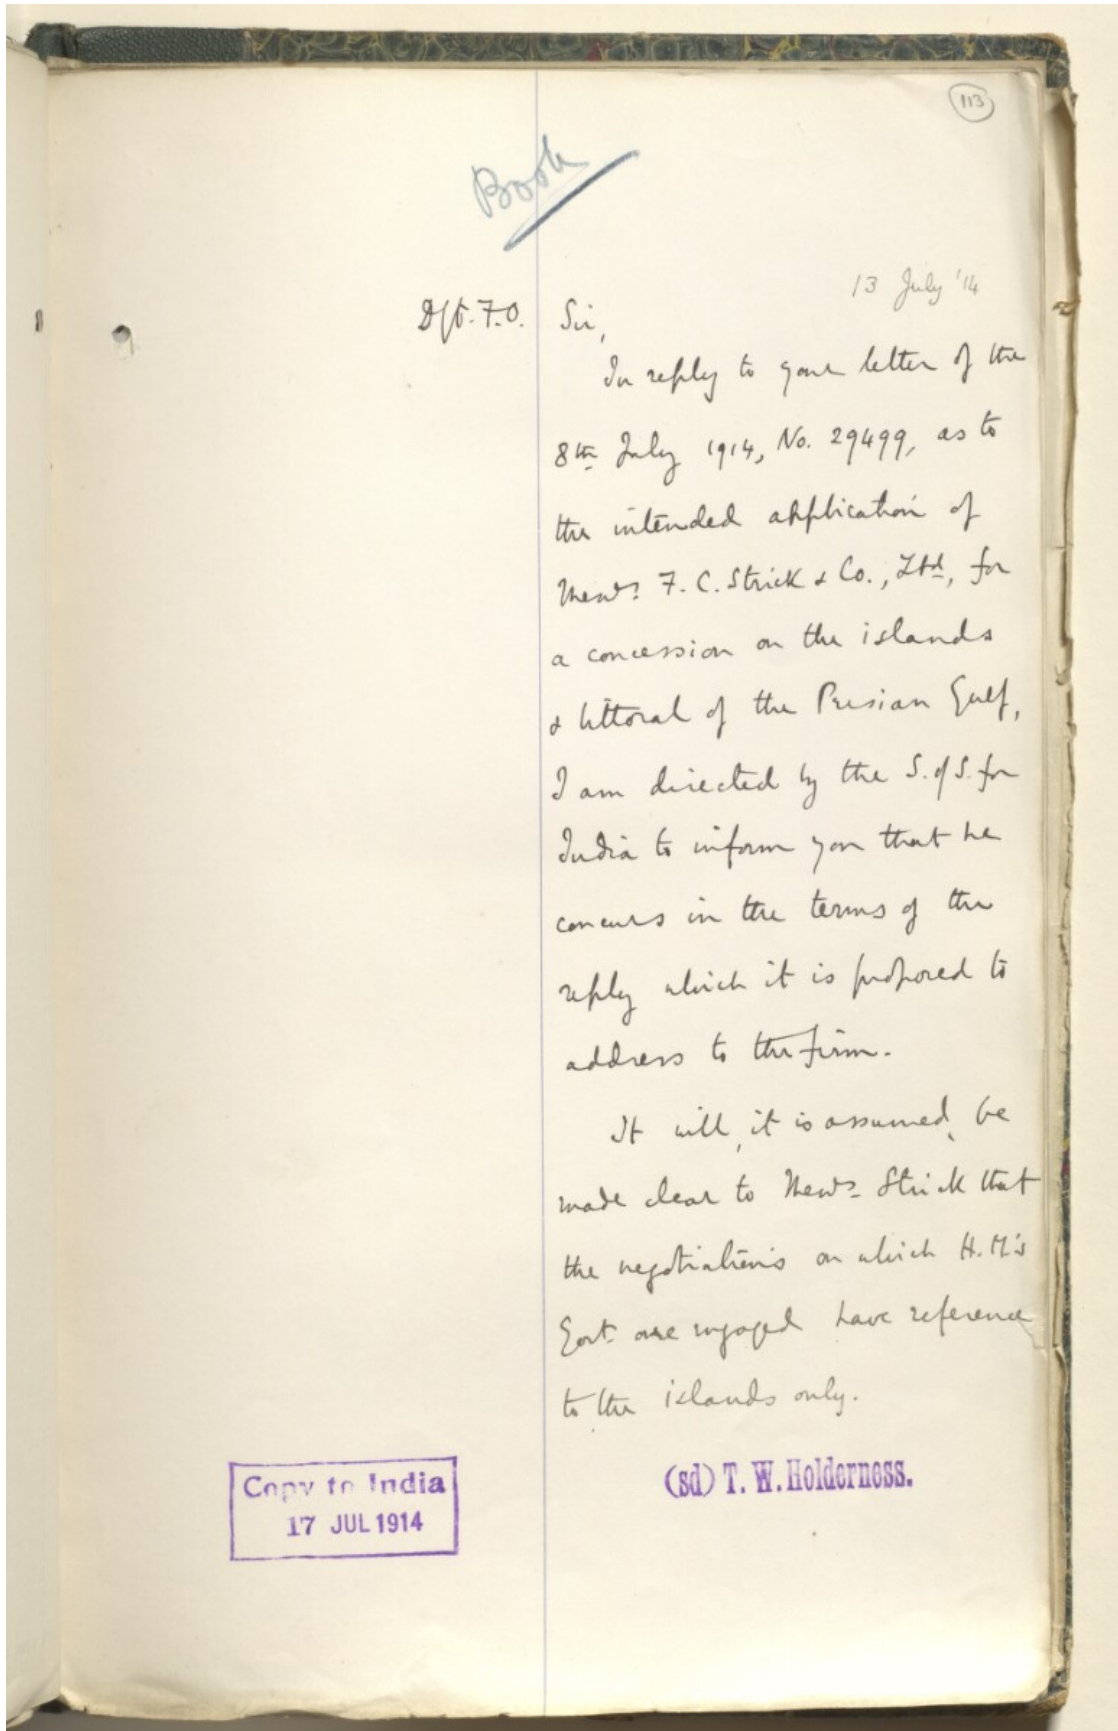 113
Book
13 July '14
Dft. F.O.
Sir,
In reply to your letter of the
8th July 1914, No. 29499, as to
the intended application of
Messrs. F. C. Strick & Co., Ltd, for
a concession on the islands
& littoral of the Persian Gulf,
I am directed by the S. of S. for
India to inform you that he
concurs in the terms of the
reply which it is proposed to
address to the firm.
It will, it is assumed, be
made clear to Messrs. Strick that
the negotiations on which H.M's
Govt. are engaged have reference
to the islands only.
(sd) T. W. Holderness.
Copy to India
17 JUL 1914